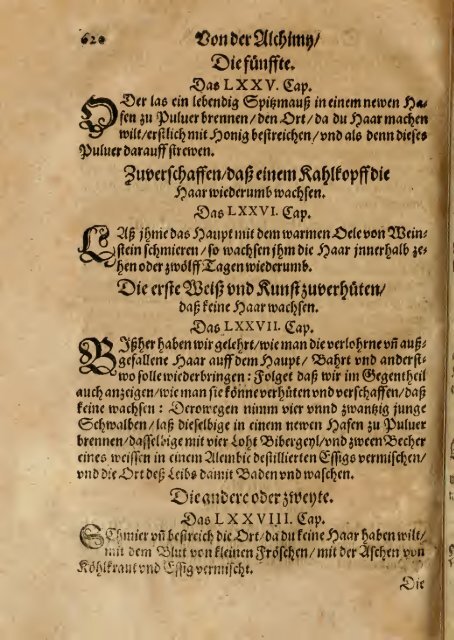 620 Von der Alchimy/
Die fünffte.
Das LXXV. Cap.
Oder las ein lebendig Spitzmauß in einem newen Ha-
fen zu Puluer brennen/den Ort/da du Haar machen
wilt/erstlich mit Honig bestreichen/vnd als denn dieses
Puluer darauff strewen.
Zuverschaffen/daß einem Kahlkopff die
Haar wiederumb wachsen.
Das LXXVI. Cap.
Laß jhme das Haupt mit dem warmen Oele von Wein-
stein schmieren/so wachsen jhm die Haar jnnerhalb ze-
hen oder zwölff Tagen wiederumb.
Die erste Weiß vnd Kunst zuverhüten/
daß keine Haar wachsen.
Das LXXVII. Cap.
Bißher haben wir gelehrt/wie man die verlohrne vñ auß-
gefallene Haar auff dem Haupt/Bahrt vnd anderst-
wo solle wiederbringen: Folget daß wir im Gegentheil
auch anzeigen/wie man sie könne verhüten vnd verschaffen/daß
keine wachsen: Derowegen nimm vier vnnd zwantzig junge
Schwalben/laß dieselbige in einem newen Hafen zu Puluer
brennen/dasselbige mit vier Loht Bibergeyl/vnd zween Becher
eines weissen in einem Alembic destillierten Essigs vermischen/
vnd die Ort deß Leibs damit Baden vnd waschen.
Die andere oder zweyte.
Das LXXVIII. Cap.
Schmier vñ bestreich die Ort/da du keine Haar haben wilt/
mit dem Blut von kleinen Fröschen/mit der Aschen von
Köhlkraut vnd Essig vermischt.
Die